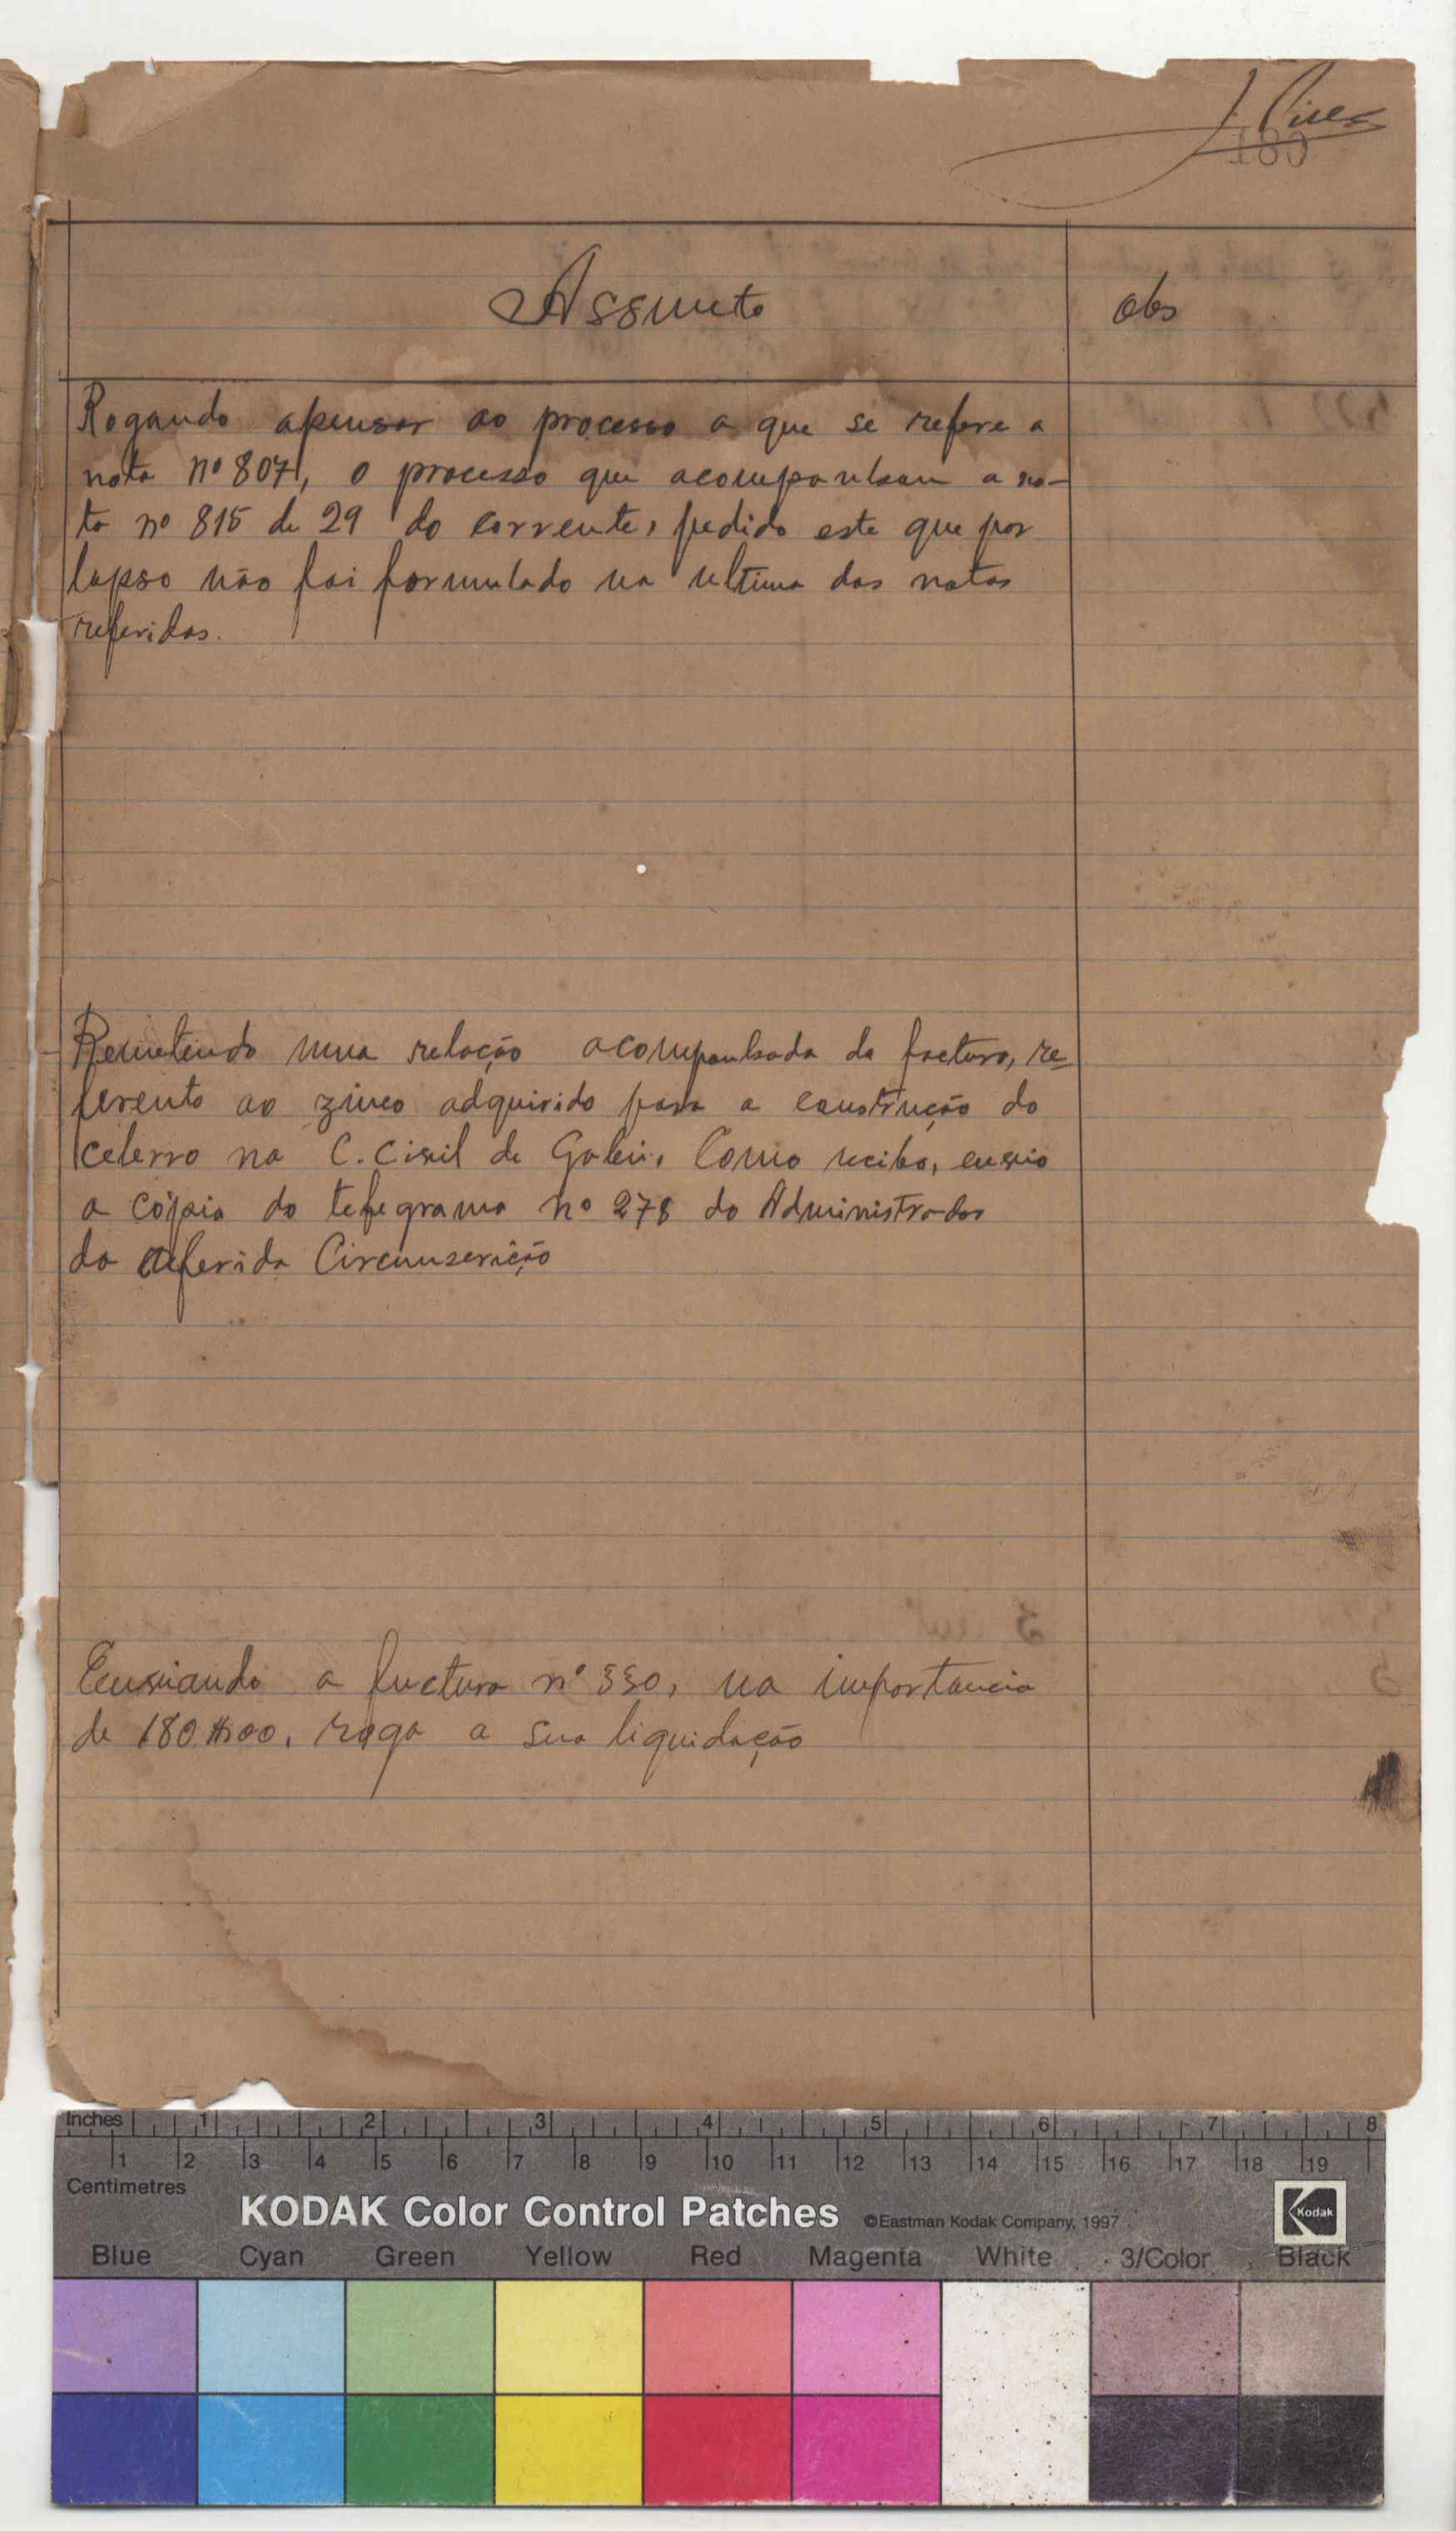 J. Pires
180
Assunto
Obs
Rogando apensar ao processo a que se refere a
nota nº 807, o processo que acompanham a no-
ta nº 815 de 29 do corrente, pedido este que por
lapso não foi formulado na ultima das notas
referidas.
Remetendo uma relação acompanhada da factura, re-
ferente ao zinco adquirido para a construção do
celerro na C. Civil de Gabú. Como recibo, envio
a cópia do telegrama nº 278 do Administrador
da referida Circunscrição
Enviando a factura nº 550, na importancia
de 180$00, roga a sua liquidação
Inches 1 2 3 4 5 6 7 8
1 2 3 4 5 6 7 8 9 10 11 12 13 14 15 16 17 18 19
Centimetres
KODAK Color Control Patches ©Eastman Kodak Company, 1997 Kodak
Blue Cyan Green Yellow Red Magenta White 3/Color Black